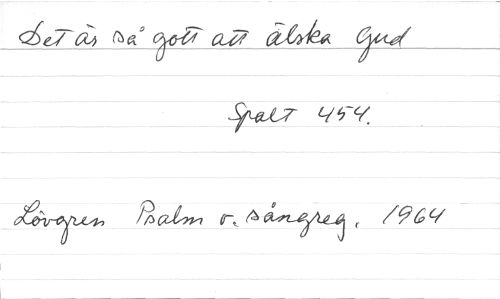 Det är så gott att älska Gud
Spalt 454.
Lövgren Psalm o. sångreg. 1964